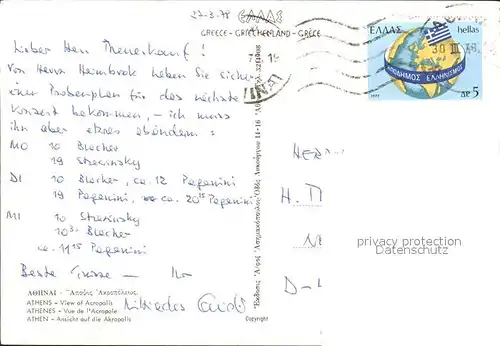 27-3-78
ΕΛΛΑΣ
GREECE - GRIECHENLAND - GRÈCE
Lieber Herr Theuerkauf !
Von Herrn Hambrock haben Sie sicher
einen Probenplan für das nächste
Konzert bekommen, - ich muss
ihn aber etwas abändern :
MO 10 Blacher
19 Strawinsky
DI 10 Blacher, ca. 12 Paganini
19 Paganini, ca 20 15 Paganini
MI 10 Strawinsky
10 30 Blacher
ca. 11 15 Paganini
Beste Grüsse - Ihr
Miltiades
ΑΘΗΝΑΙ - Ἄποψις Ἀκροπόλεως
ATHENS - View of Acropolis
ATHENES - Vue de l'Acropole
ATHEN - Ansicht auf die Akropolis
Copyright
ΕΛΛΑΣ hellas
ΑΠΟΔΗΜΟΣ ΕΛΛΗΝΙΣΜΟΣ
1977 ΔΡ 5
30 III 78
HERRN
H. T
N
D-
privacy protection
Datenschutz